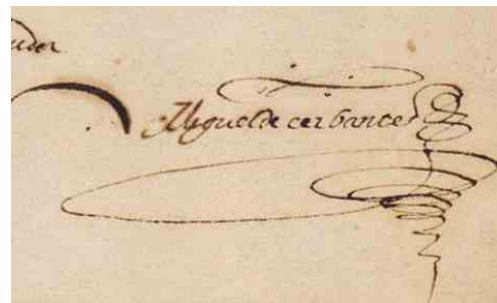 Miguel de cerbantes